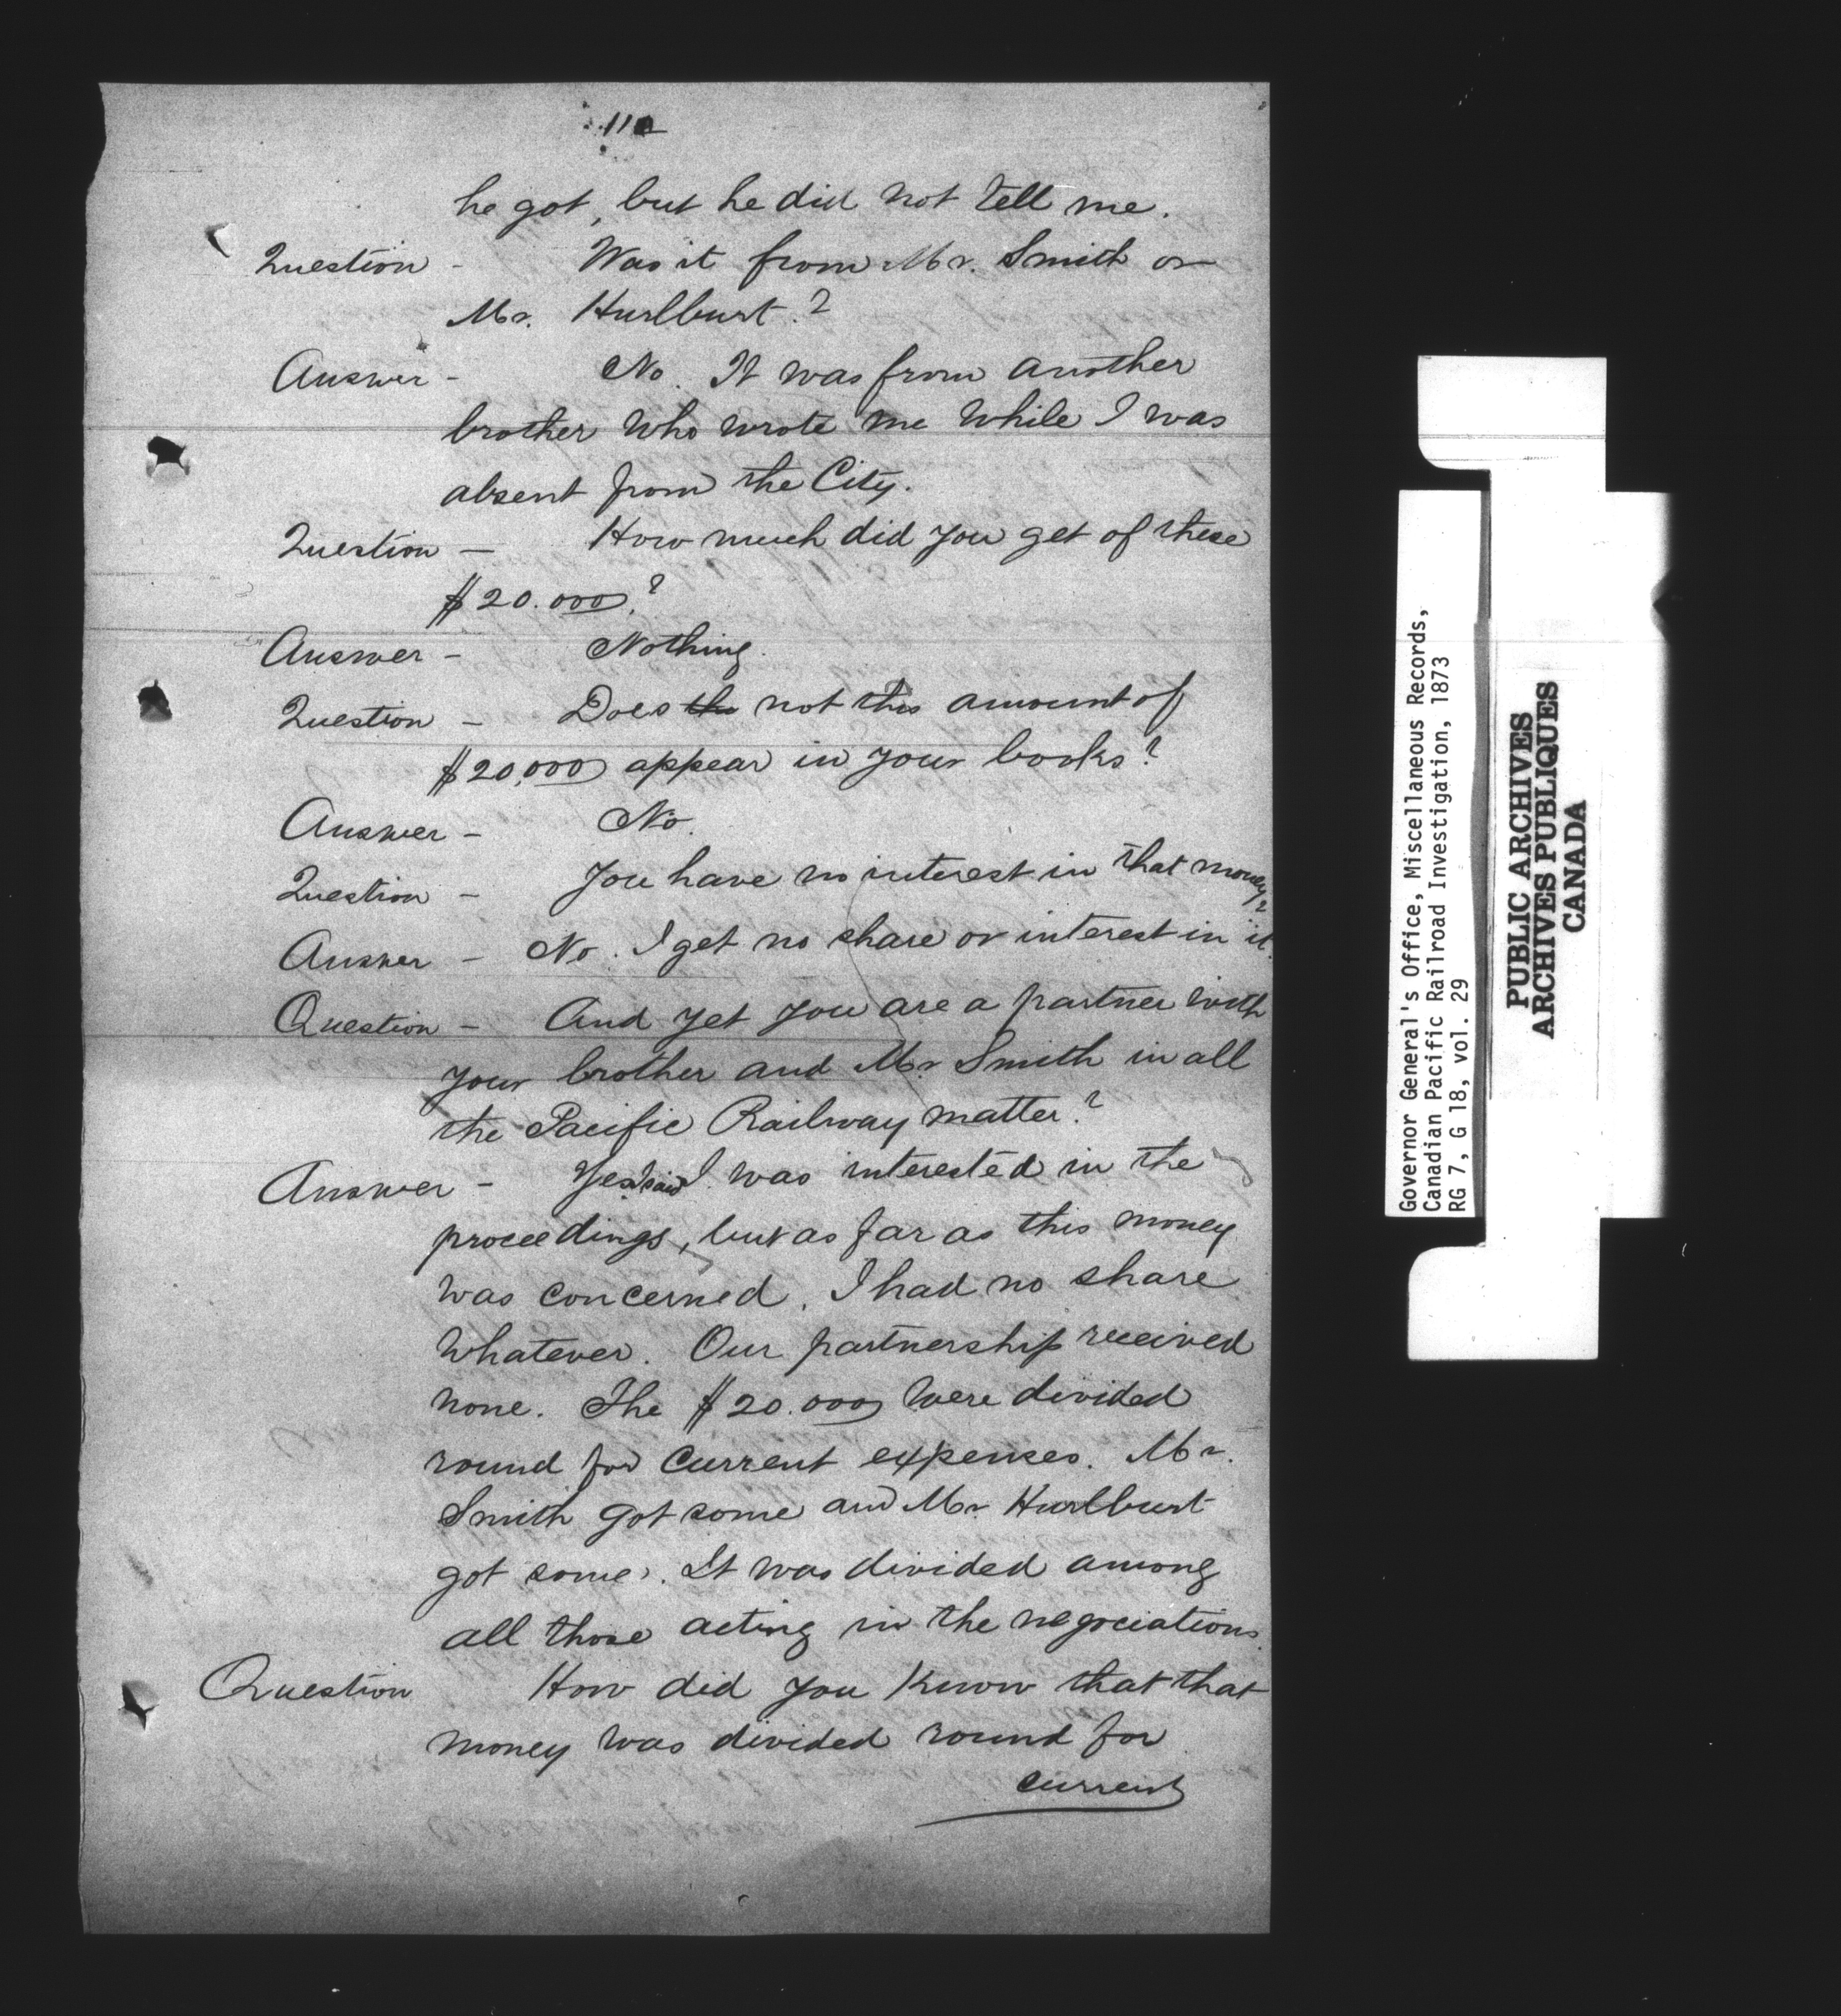 he got, but he did not tell me.
Question - Was it from Mr. Smith or
Mr. Hurlburt?
Answer - No. It was from another
brother who wrote me while I was
absent from the City.
Question - How much did you get of these
$20.000?
Answer - Nothing.
Question - Does the not this amount of
$20,000 appear in your books?
Answer - No.
Question - You have no interest in that money?
Answer - No. I get no share or interest in it.
Question - And yet you are a partner with
your brother and Mr Smith in all
the Pacific Railway matter?
Answer - Yes I said I was interested in the
proceedings, but as far as this money
was concerned, I had no share
whatever. Our partnership received
none. The $20.000 were divided
round for current expenses. Mr.
Smith got some and Mr. Hurlburt
got some. It was divided among
all those acting in the negociations.
Question How did you know that that
money was divided round for
current
Governor General's Office, Miscellaneous Records,
Canadian Pacific Railroad Investigation, 1873
RG 7, G 18, vol. 29
PUBLIC ARCHIVES
ARCHIVES PUBLIQUES
CANADA